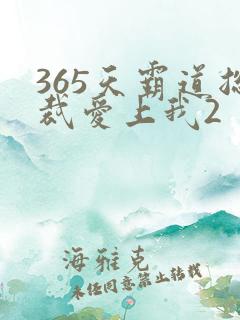 365天霸道总
裁爱上我2
海雅克
未经同意禁止转载